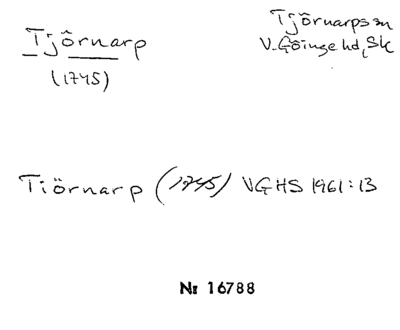 Tjörnarp
(1745)
Tjörnarps sn
V. Göinge hd, Sk
Tiörnarp (1745) VGHS 1961:13
Nr 16788